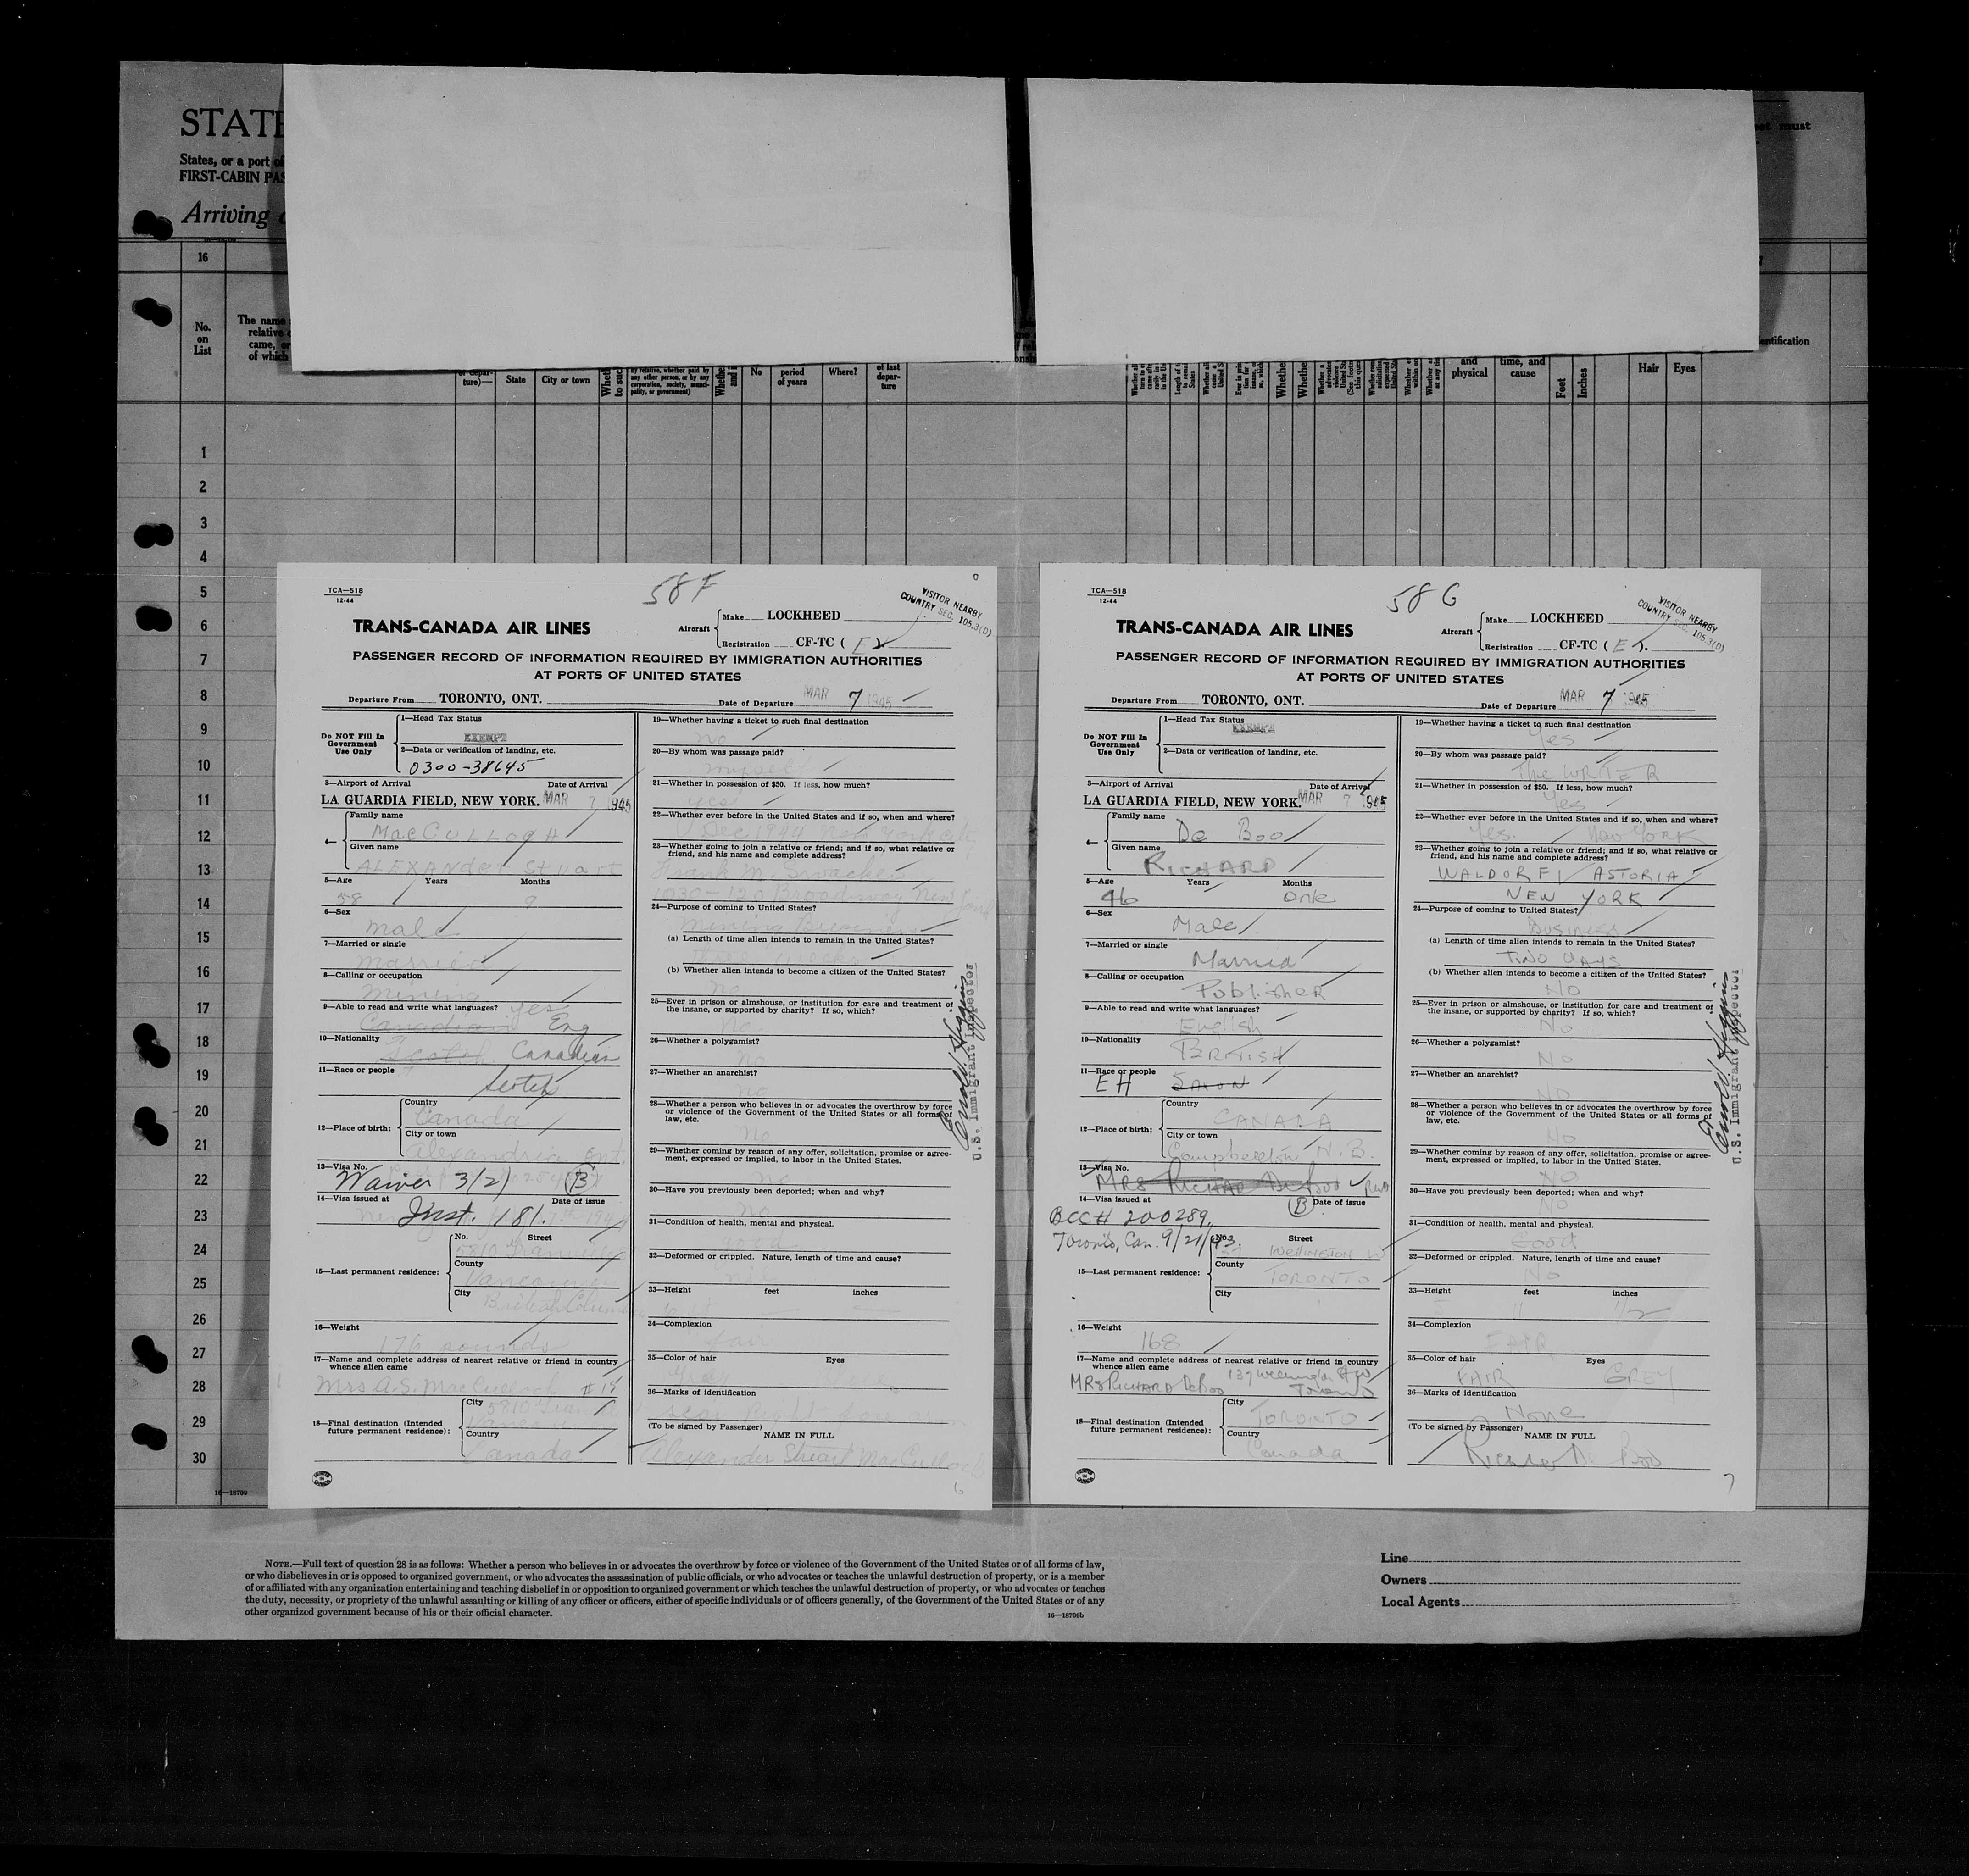 STATE
States, or a port of
FIRST-CABIN PAS
Arriving
must
16
No.
on
List
The name
relative
came, or
of which
State
City or town
by relative, whether paid by
any other person, or by any
corporation, society, munici-
pality, or government)
No
period
of years
Where?
of last
depar-
ture
and
physical
time, and
cause
Feet
Inches
Hair
Eyes
entification
1
2
3
4
5
6
7
8
9
10
11
12
13
14
15
16
17
18
19
20
21
22
23
24
25
26
27
28
29
30
16—18709
TCA—518
12-44
58 F
VISITOR NEARBY
COUNTRY SEC. 105.3(D)
TRANS-CANADA AIR LINES
Aircraft
Make LOCKHEED
Registration CF-TC (
PASSENGER RECORD OF INFORMATION REQUIRED BY IMMIGRATION AUTHORITIES
AT PORTS OF UNITED STATES
Departure From TORONTO, ONT. Date of Departure MAR 7 1945
Do NOT Fill In
Government
Use Only
1—Head Tax Status
EXEMPT
2—Data or verification of landing, etc.
0300-38645
3—Airport of Arrival Date of Arrival
LA GUARDIA FIELD, NEW YORK. MAR 7 1945
4—
Family name
MacCULLOGH
Given name
ALEXANDER Stuart
5—Age Years Months
58 9
6—Sex
male
7—Married or single
married
8—Calling or occupation
mining
9—Able to read and write what languages? yes
Canadian Eng
10—Nationality
Scotch Canadian
11—Race or people
Scotch
12—Place of birth:
Country
Canada
City or town
Alexandria Ont.
13—Visa No.
Waiver 3/2) B
14—Visa issued at Date of issue
Inst. 181.
15—Last permanent residence:
No. Street
5810
County
Vancouver
City
British Columbia
16—Weight
176 pounds
17—Name and complete address of nearest relative or friend in country
whence alien came
Mrs A.S. MacCulloch #15
18—Final destination (Intended
future permanent residence):
City
5810
Country
Canada
19—Whether having a ticket to such final destination
no
20—By whom was passage paid?
myself
21—Whether in possession of $50. If less, how much?
yes
22—Whether ever before in the United States and if so, when and where?
Dec 1944 New York City
23—Whether going to join a relative or friend; and if so, what relative or
friend, and his name and complete address?
Frank M.
120 Broadway New York
24—Purpose of coming to United States?
Mining Business
(a) Length of time alien intends to remain in the United States?
weeks
(b) Whether alien intends to become a citizen of the United States?
no
25—Ever in prison or almshouse, or institution for care and treatment of
the insane, or supported by charity? If so, which?
no
26—Whether a polygamist?
no
27—Whether an anarchist?
no
28—Whether a person who believes in or advocates the overthrow by force
or violence of the Government of the United States or all forms of
law, etc.
no
29—Whether coming by reason of any offer, solicitation, promise or agree-
ment, expressed or implied, to labor in the United States.
no
30—Have you previously been deported; when and why?
no
31—Condition of health, mental and physical.
good
32—Deformed or crippled. Nature, length of time and cause?
33—Height feet inches
34—Complexion
fair
35—Color of hair Eyes
36—Marks of identification
(To be signed by Passenger)
NAME IN FULL
Alexander Stuart MacCulloch
U.S. Immigrant Inspector
6
TCA—518
12-44
58 G
VISITOR NEARBY
COUNTRY SEC. 105.3(D)
TRANS-CANADA AIR LINES
Aircraft
Make LOCKHEED
Registration CF-TC (
PASSENGER RECORD OF INFORMATION REQUIRED BY IMMIGRATION AUTHORITIES
AT PORTS OF UNITED STATES
Departure From TORONTO, ONT. Date of Departure MAR 7 1945
Do NOT Fill In
Government
Use Only
1—Head Tax Status
EXEMPT
2—Data or verification of landing, etc.
3—Airport of Arrival Date of Arrival
LA GUARDIA FIELD, NEW YORK. MAR 7 1945
4—
Family name
De Boo
Given name
RICHARD
5—Age Years Months
46 One
6—Sex
Male
7—Married or single
Married
8—Calling or occupation
Publisher
9—Able to read and write what languages?
English
10—Nationality
BRITISH
11—Race or people
EH
12—Place of birth:
Country
CANADA
City or town
Campbellton N.B.
13—Visa No.
MRS RICHARD De Boo
14—Visa issued at B Date of issue
BCC# 200289.
Toronto, Can. 9/21/43.
15—Last permanent residence:
No. Street
Wellington W
County
TORONTO
City
16—Weight
168
17—Name and complete address of nearest relative or friend in country
whence alien came
MRS RICHARD DeBoo 137 Wellington St W
Toronto
18—Final destination (Intended
future permanent residence):
City
TORONTO
Country
Canada
19—Whether having a ticket to such final destination
Yes
20—By whom was passage paid?
The WRITER
21—Whether in possession of $50. If less, how much?
Yes
22—Whether ever before in the United States and if so, when and where?
Yes. New YORK
23—Whether going to join a relative or friend; and if so, what relative or
friend, and his name and complete address?
WALDORF ASTORIA
NEW YORK
24—Purpose of coming to United States?
Business
(a) Length of time alien intends to remain in the United States?
TWO DAYS
(b) Whether alien intends to become a citizen of the United States?
NO
25—Ever in prison or almshouse, or institution for care and treatment of
the insane, or supported by charity? If so, which?
No
26—Whether a polygamist?
NO
27—Whether an anarchist?
NO
28—Whether a person who believes in or advocates the overthrow by force
or violence of the Government of the United States or all forms of
law, etc.
No
29—Whether coming by reason of any offer, solicitation, promise or agree-
ment, expressed or implied, to labor in the United States.
NO
30—Have you previously been deported; when and why?
NO
31—Condition of health, mental and physical.
Good
32—Deformed or crippled. Nature, length of time and cause?
No
33—Height feet inches
5 11 1/2
34—Complexion
FAIR
35—Color of hair Eyes
FAIR GREY
36—Marks of identification
None
(To be signed by Passenger)
NAME IN FULL
Richard De Boo
U.S. Immigrant Inspector
7
NOTE.—Full text of question 28 is as follows: Whether a person who believes in or advocates the overthrow by force or violence of the Government of the United States or of all forms of law,
or who disbelieves in or is opposed to organized government, or who advocates the assassination of public officials, or who advocates or teaches the unlawful destruction of property, or is a member
of or affiliated with any organization entertaining and teaching disbelief in or opposition to organized government or which teaches the unlawful destruction of property, or who advocates or teaches
the duty, necessity, or propriety of the unlawful assaulting or killing of any officer or officers, either of specific individuals or of officers generally, of the Government of the United States or of any
other organized government because of his or their official character.
16—18709b
Line
Owners
Local Agents